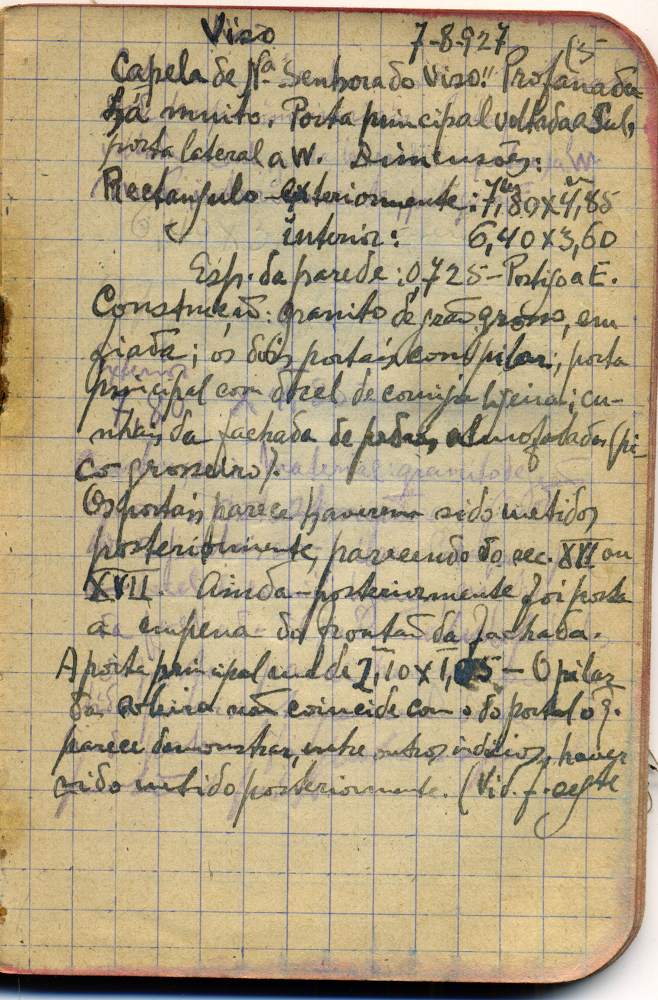 Viso 7-8-927 (5
Capela de Nª Senhora do Viso!! Profanada
há muito. Porta principal voltada a Sul,
porta lateral a W. Dimensões:
Rectangulo - exteriormente: 7,m80x4,m85
interior: 6,40x3,60
Esp. da parede: 0,725 - Postigo a E.
Construcção: granito de grão grosso, em
fiada; os dois portais com pilar; porta
principal com docel de cornija ligeira; cu-
nhais da fachada de pedras almofadadas (pi-
co grosseiro).
Os portais parece haverem sido metidos
posteriormente, parecendo do sec. XVI ou
XVII. Ainda posteriormente foi posta
a empena do frontão da fachada.
A porta principal mede 2,10x1,05 - O pilar
da soleira não coincide com o do portal o q.
parece demonstrar, entre outros indicios, haver
sido metido posteriormente. (Vid. f. segte